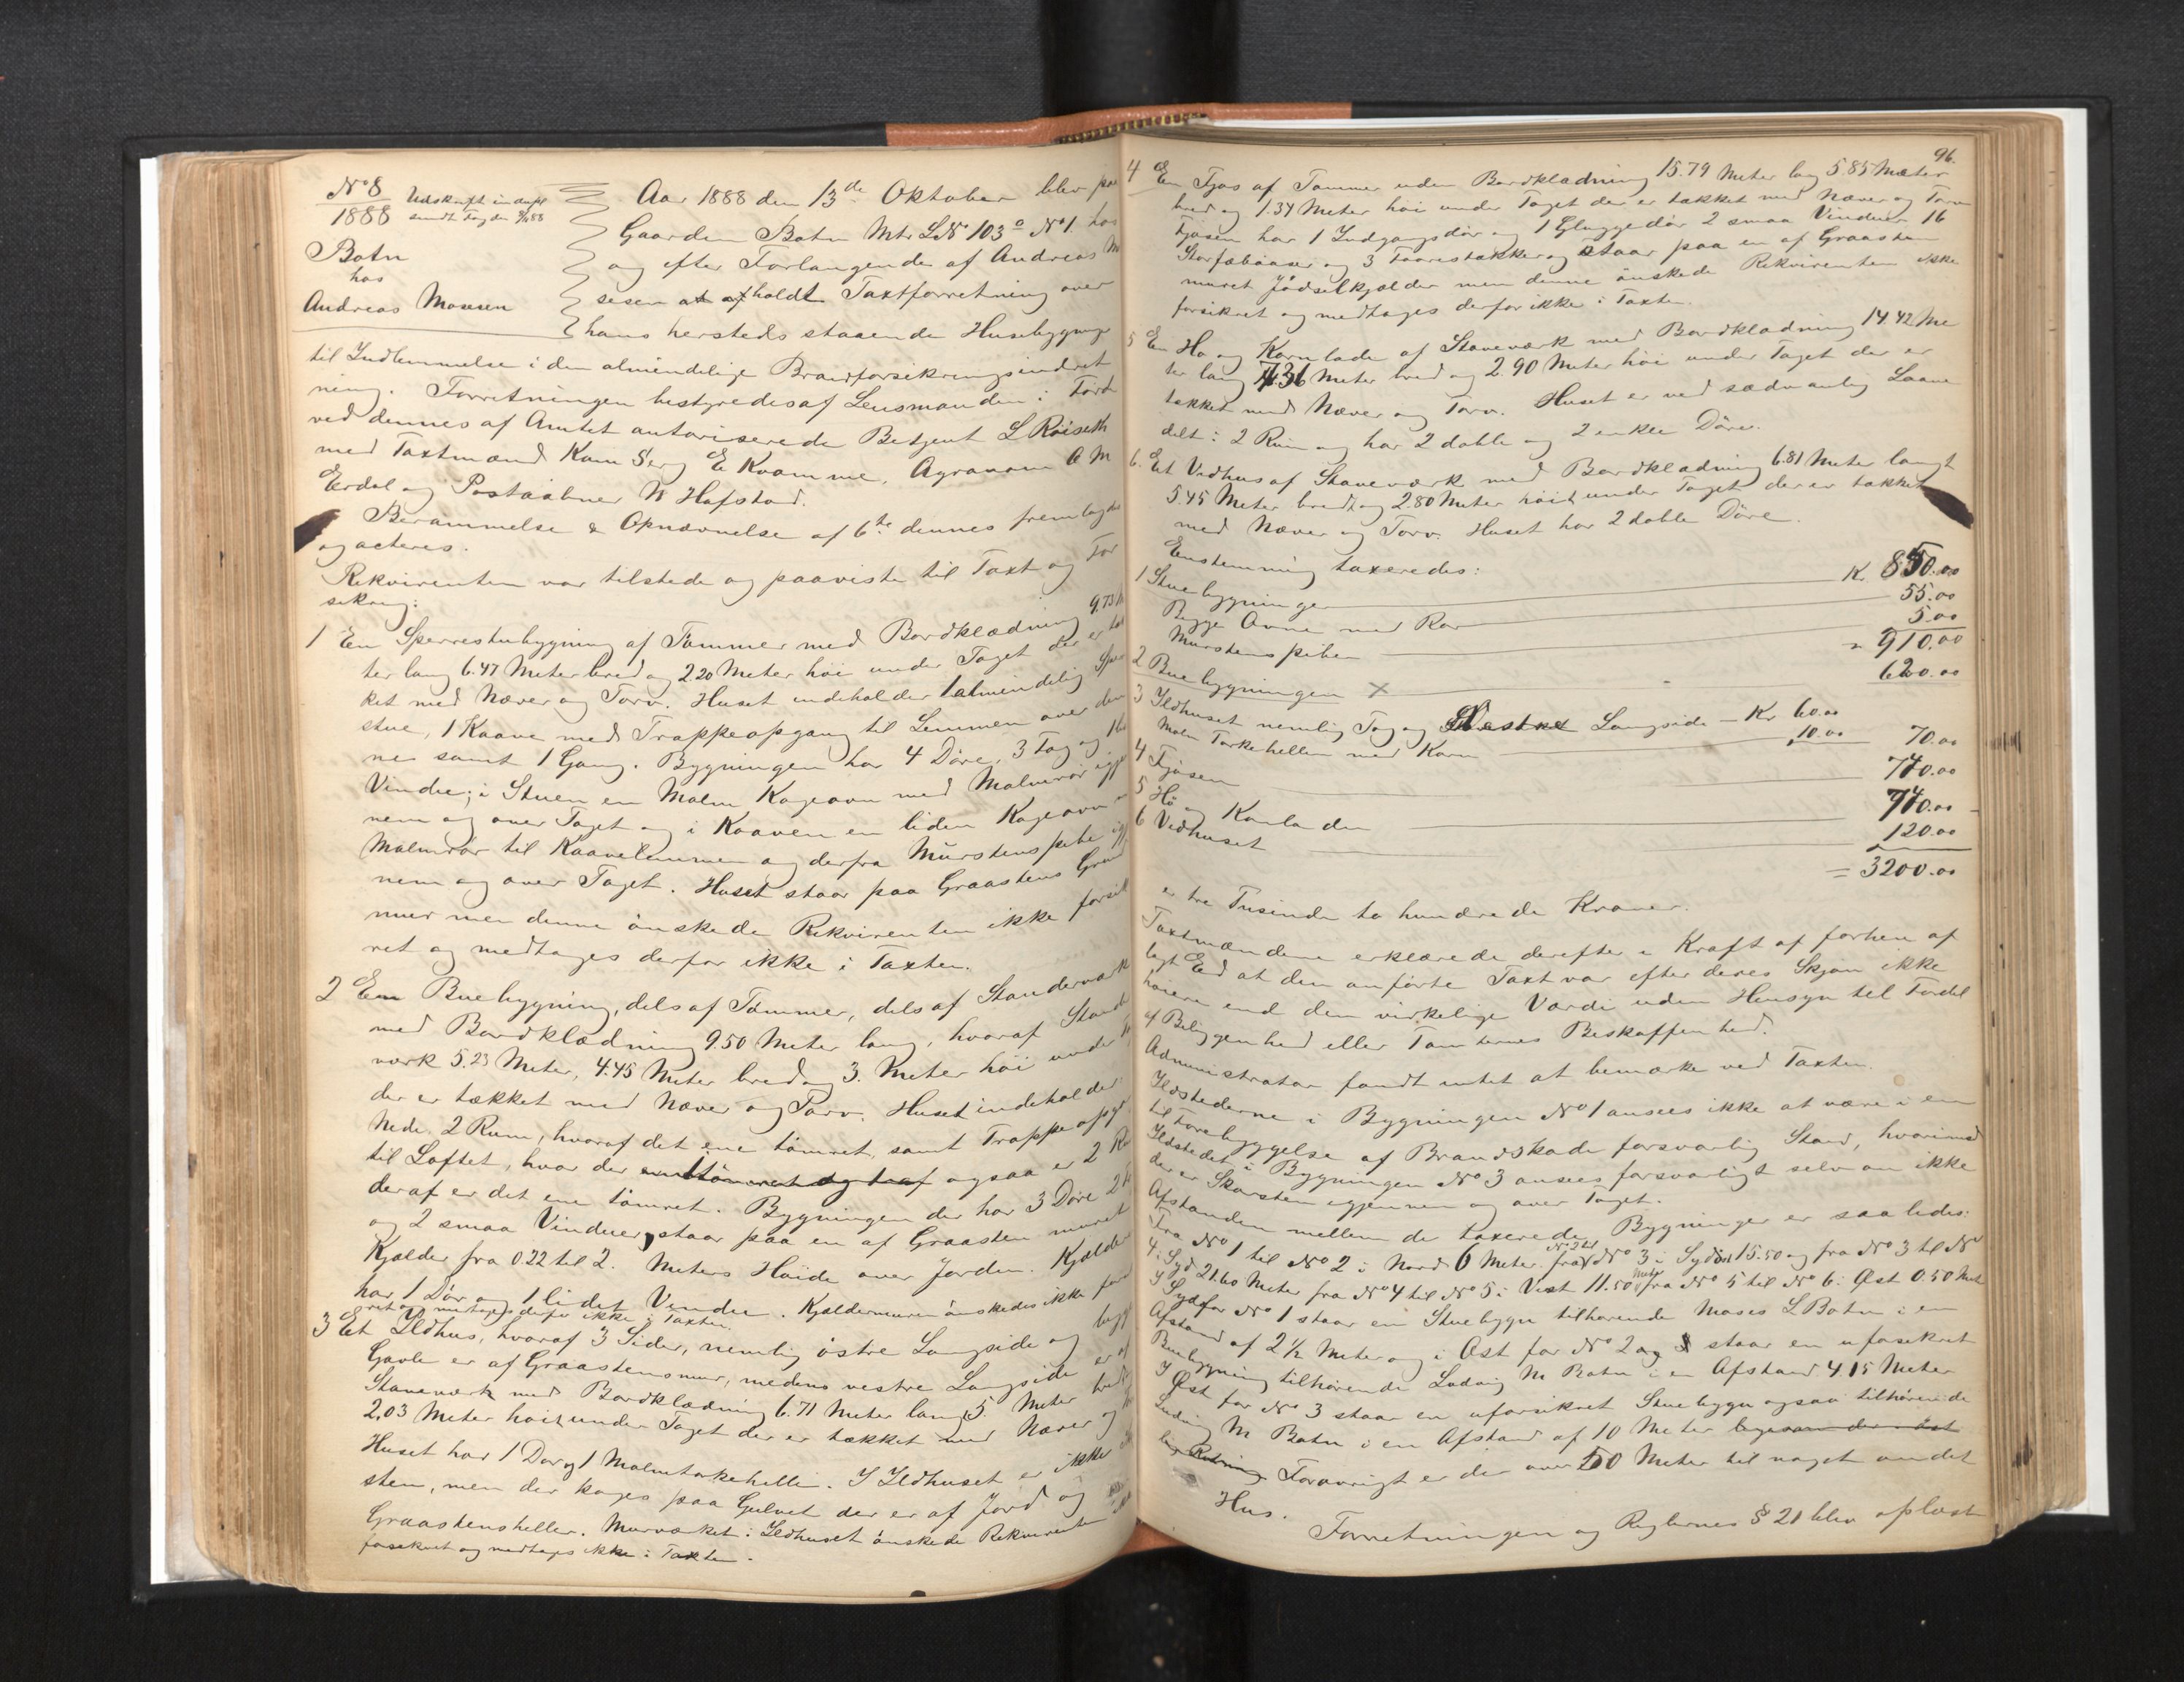 No 8
1888
Udskrift in dupl
sendt Fog den 9/11 88
Botn
hos
Andreas Mosesen
Aar 1888 den 13de Oktober blev paa
Gaarden Botn Mtr LNo 103a No 1 hos
og efter Forlangende af Andreas M
sesen afholdt Taxtforretning over
hans hersteds staaende Husebygnge
til Indlemmelse i den almindelige Brandforsikringsindret
ning. Forretningen bestyredes af Lensmanden i Førde
ved dennes af Amtet autoriserede Betjent L Røiseth
med Taxtmænd Kam Serg E Kvamme, Agronom O M
Erdal og Postaabner N Hafstad.
Berammelse & Opnævnelse af 6te dennes fremlagdes
og acteres.
Rekvirenten var tilstede og paaviste til Taxt og For
sikring:
1 En Sperrestubygning af Tømmer med Bordklædning 9.73 M
ter lang 6.47 Meter bred og 2.20 Meter høi under Taget der er tæk
ket med Næver og Torv. Huset indeholder 1 almindelig Sper
stue, 1 Kaave med Trappeopgang til Lemmen over den
ne samt 1 Gang. Bygningen har 4 Døre, 3 Fag og
Vinduer; i Stuen en Malm Kogeovn med Malmrør igje
nem og over Taget og i Kaaven en liden Kogeovn
Malmrør til Kaavelemmen og derfra Murstenspibe igj
nem og over Taget. Huset staar paa Graastens Grund
muur men denne ønskede Rekvirenten ikke forsik
ret og medtages derfor ikke i Taxten.
2 En Buebygning, dels af Tømmer, dels af Standerværk
med Bordklædning 9.50 Meter lang, hvoraf Stand
værk 5.23 Meter, 4.45 Meter bred og 3. Meter høi under T
der er tækket med Næver og Torv. Huset indeholder
Nede 2 Rum, hvoraf det ene tømret, samt Trappeopg
til Loftet, hvor der ogsaa er 2 Ru
deraf er det ene tømret. Bygningen der har 3 Døre 2 F
og 2 smaa Vinduer, staar paa en af Graasten muret
Kjælder fra 0.22 til 2. Meters Høide over Jorden. Kjælder
har 1 Dør og 1 lidet Vindue. Kjældermuren ønskedes ikke fors
ret og medtages derfor ikke i Taxten.
3 Et Ildhus, hvoraf 3 Sider, nemlig østre Langside og begge
Gavle er af Graastensmur, medens vestre Langside er af
Staveværk med Bordklædning 6.71 Meter lang 5. Meter bredt
2.03 Meter høit under Taget der er tækket med Næver og To
Huset har 1 Dør og 1 Malmtørkehelle. I Ildhuset er ikke
sten, men der koges paa Gulvet der er af Jord og
Graastensheller. Murværket i Ildhuset ønskede Rekvirenten
forsikret og medtages ikke i Taxten.
96.
4 En Fjøs af Tømmer uden Bordklædning 15.79 Meter lang 5.85 Meter
bred og 1.34 Meter høi under Taget der er tækket med Næver og Torv
Fjøsen har 1 Indgangsdør og 1 Gluggedør 2 smaa Vinduer 16
Storfæbaaser og 3 Faarestakker og staar paa en af Graasten
muret Jødselkjælder men denne ønskede Rekvirenten ikke
forsikret og medtages derfor ikke i Taxten.
5 En Hø og Kornlade af Staveværk med Bordklædning 14.42 Me
ter lang 7.36 Meter bred og 2.90 Meter høi under Taget der er
tækket med Næver og Torv. Huset er ved sædvanlig Laave
delt i 2 Rum og har 2 doble og 2 enkle Døre.
6. Et Vedhus af Staveværk med Bordklædning 6.81 Meter langt
5.45 Meter bredt og 2.80 Meter høit under Taget der er tækket
med Næver og Torv. Huset har 2 doble Døre.
Eenstemmig taxeredes:
1 Stuebygningen K. 850.00
Begge Ovne med Rør 55.00
Murstenspiben 5.00
= 910.00
2 Buebygningen × 620.00
3 Ildhuset nemlig Tag og Vestre Langside – Kr 60.00
Malm Tørkehellen med Karm 10.00 70.00
4 Fjøsen 740.00
5 Hø og Kornladen 740.00
6 Vedhuset 120.00
= 3200.00
er tre Tusinde to hundrede Kroner.
Taxtmændene erklærede derefter i Kraft af forhen af
lagt Eed at den anførte Taxt var efter deres Skjøn ikke
høiere end den virkelige Værdi uden Hensyn til Fordel
af Beliggenhed eller Tomternes Beskaffenhed.
Administrator fandt intet at bemærke ved Taxten.
Ildstederne i Bygningen No 1 ansees ikke at være i en
til Forebyggelse af Brandskade forsvarlig Stand, hvorimod
Ildstedet i Bygningen No 3 ansees forsvarligt selv om ikke
der er Skorsten igjennem og over Taget.
Afstanden mellem de taxerede Bygninger er saaledes:
Fra No 1 til No 2 i Nord 6 Meter. fra No 2 til No 3 i Sydost 15.50 og fra No 3 til No
4 i Syd 21.60 Meter fra No 4 til No 5 i Vest 11.50 Meter fra No 5 til No 6 i Øst 0.50 Met
I Syd for No 1 staar en Stuebygn tilhørende Moses L Botn i en
Afstand af 2 1/2 Meter og i Øst for No 2 staar en uforsikret
Buebygning tilhørende Ludvig M Botn i en Afstand 4.15 Meter
I Øst for No 3 staar en uforsikret Stuebygn ogsaa tilhørende
Ludvig M Botn i en Afstand af 10 Meter
Forøvrigt er der over 50 Meter til noget andet
Hus.
Forretningen og Reglernes § 21 blev oplæst